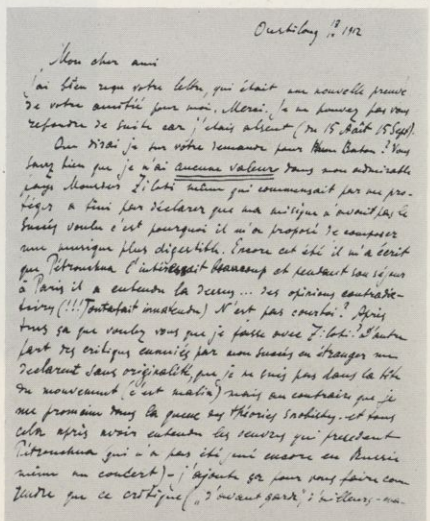 Oustiloug 1912
Mon cher ami
J'ai bien reçu votre lettre, qui était une nouvelle preuve
de votre amitié pour moi. Merci. Je ne pouvez pas vous
repondre de suite car j'etais absent (du 15 Août 15 Sept).
Que dirai je sur votre demande pour Baton? Vous
savez bien que je n'ai aucune valeur dans mon admirable
pays Monsieur Ziloti même qui commensait par me pro-
teger a fini par declarer que ma musique n'avait pas le
succès voulu c'est pourquoi il m'a proposé de composer
une musique plus digestible. Encore cet été il m'a écrit
que Pétrouchka l'intéressait beaucoup et pendant son séjour
à Paris il a entendu la dessus... des opinions contradic-
toires (!!! Toutafait innatendu) N'est pas courtoi? Après
tous ça que voulez vous que je fasse avec Ziloti? D'autre
part des critiques ennuiés par mon succès en étranger me
declarent sans originalité, que je ne suis pas dans la tête
du mouvement (c'est malin) mais au contraire que je
me promain dans la queue des théories snobistes - et tous
cela après avoir entendu les oeuvres qui precedent
Pétrouchka qui n'a pas été joué encore en Russie
même au concert) - j'ajoute ça pour vous faire com-
prendre que ce critique („d'avant garde" d'ailleurs -